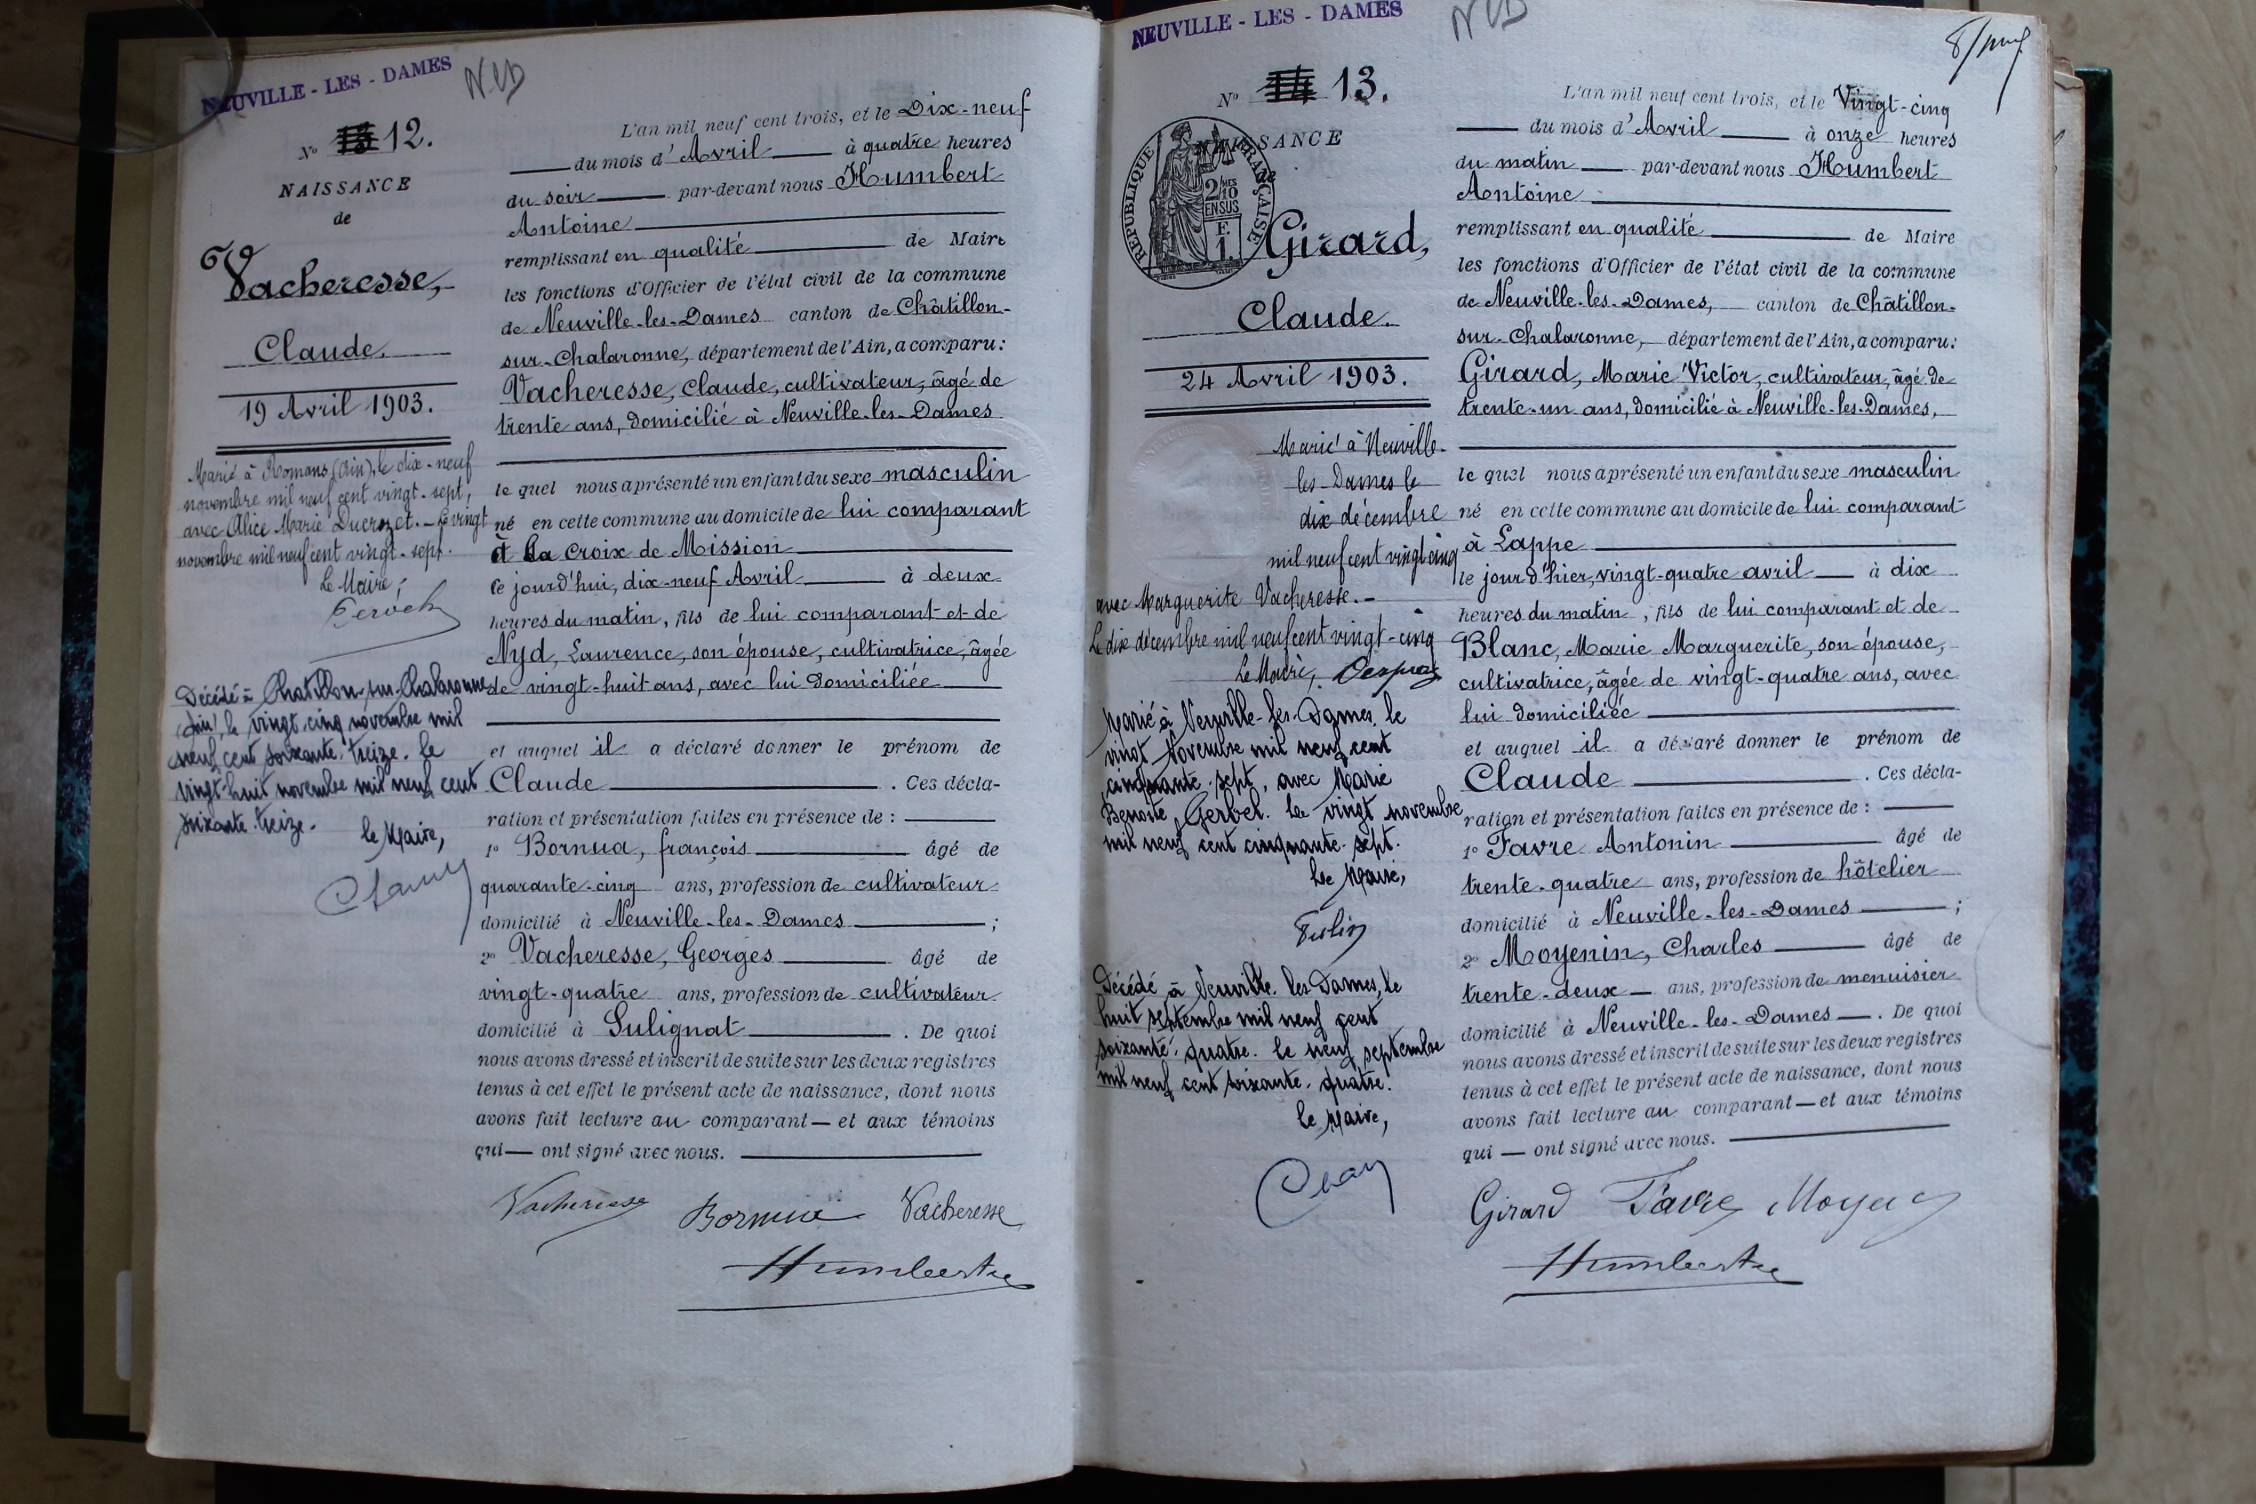 NEUVILLE - LES - DAMES
NLD
N° 12.
NAISSANCE
de
Vacheresse,
Claude.
19 Avril 1903.
Marié à Romans (Ain), le dix-neuf
novembre mil neuf cent vingt-sept,
avec Alice Marie Ducrozet. - Le vingt
novembre mil neuf cent vingt-sept.
Le Maire,
Décédé à Chatillon-sur-Chalaronne
(Ain), le vingt cinq novembre mil
neuf cent soixante-treize. le
vingt-huit novembre mil neuf cent
soixante-treize.
le Maire,
L'an mil neuf cent trois, et le Dix-neuf
du mois d'Avril à quatre heures
du soir par-devant nous Humbert
Antoine
remplissant en qualité de Maire
les fonctions d'Officier de l'état civil de la commune
de Neuville-les-Dames canton de Châtillon-
sur-Chalaronne, département de l'Ain, a comparu :
Vacheresse, Claude, cultivateur, âgé de
trente ans, domicilié à Neuville-les-Dames
le quel nous a présenté un enfant du sexe masculin
né en cette commune au domicile de lui comparant
à La Croix de Mission
ce jourd'hui, dix-neuf Avril à deux
heures du matin, fils de lui comparant et de
Nyd, Laurence, son épouse, cultivatrice, âgée
de vingt-huit ans, avec lui domiciliée
et auquel il a déclaré donner le prénom de
Claude . Ces décla-
ration et présentation faites en présence de :
1° Bornua, françois âgé de
quarante-cinq ans, profession de cultivateur
domicilié à Neuville-les-Dames ;
2° Vacheresse, Georges âgé de
vingt-quatre ans, profession de cultivateur
domicilié à Sulignat . De quoi
nous avons dressé et inscrit de suite sur les deux registres
tenus à cet effet le présent acte de naissance, dont nous
avons fait lecture au comparant — et aux témoins
qui — ont signé avec nous.
Vacheresse Bornua Vacheresse
Humbert
NEUVILLE - LES - DAMES
NLD
N° 14 13.
NAISSANCE
de
REPUBLIQUE FRANÇAISE
2/10
EN SUS
F.
1.
Girard,
Claude.
24 Avril 1903.
Marié à Neuville-
les-Dames le
dix décembre
mil neuf cent vingt cinq
avec Marguerite Vacheresse. -
Le dix décembre mil neuf cent vingt-cinq
Le Maire,
Marié à Neuville-les-Dames, le
vingt Novembre mil neuf cent
cinquante-sept, avec Marie
Benoîte Gerbel. Le vingt novembre
mil neuf cent cinquante-sept.
Le Maire,
Décédé à Neuville-les-Dames, le
huit septembre mil neuf cent
soixante-quatre. le neuf septembre
mil neuf cent soixante-quatre.
le Maire,
L'an mil neuf cent trois, et le Vingt-cinq
du mois d'Avril à onze heures
du matin par-devant nous Humbert
Antoine
remplissant en qualité de Maire
les fonctions d'Officier de l'état civil de la commune
de Neuville-les-Dames, canton de Châtillon-
sur-Chalaronne, département de l'Ain, a comparu :
Girard, Marie Victor, cultivateur, âgé de
trente-un ans, domicilié à Neuville-les-Dames,
le quel nous a présenté un enfant du sexe masculin
né en cette commune au domicile de lui comparant
à Lappe
le jour d'hier, vingt-quatre avril à dix
heures du matin, fils de lui comparant et de
Blanc, Marie Marguerite, son épouse,
cultivatrice, âgée de vingt-quatre ans, avec
lui domiciliée
et auquel il a déclaré donner le prénom de
Claude . Ces décla-
ration et présentation faites en présence de :
1° Favre Antonin âgé de
trente-quatre ans, profession de hôtelier
domicilié à Neuville-les-Dames ;
2° Moyenin, Charles âgé de
trente-deux ans, profession de menuisier
domicilié à Neuville-les-Dames . De quoi
nous avons dressé et inscrit de suite sur les deux registres
tenus à cet effet le présent acte de naissance, dont nous
avons fait lecture au comparant — et aux témoins
qui — ont signé avec nous.
Girard Favre
Humbert